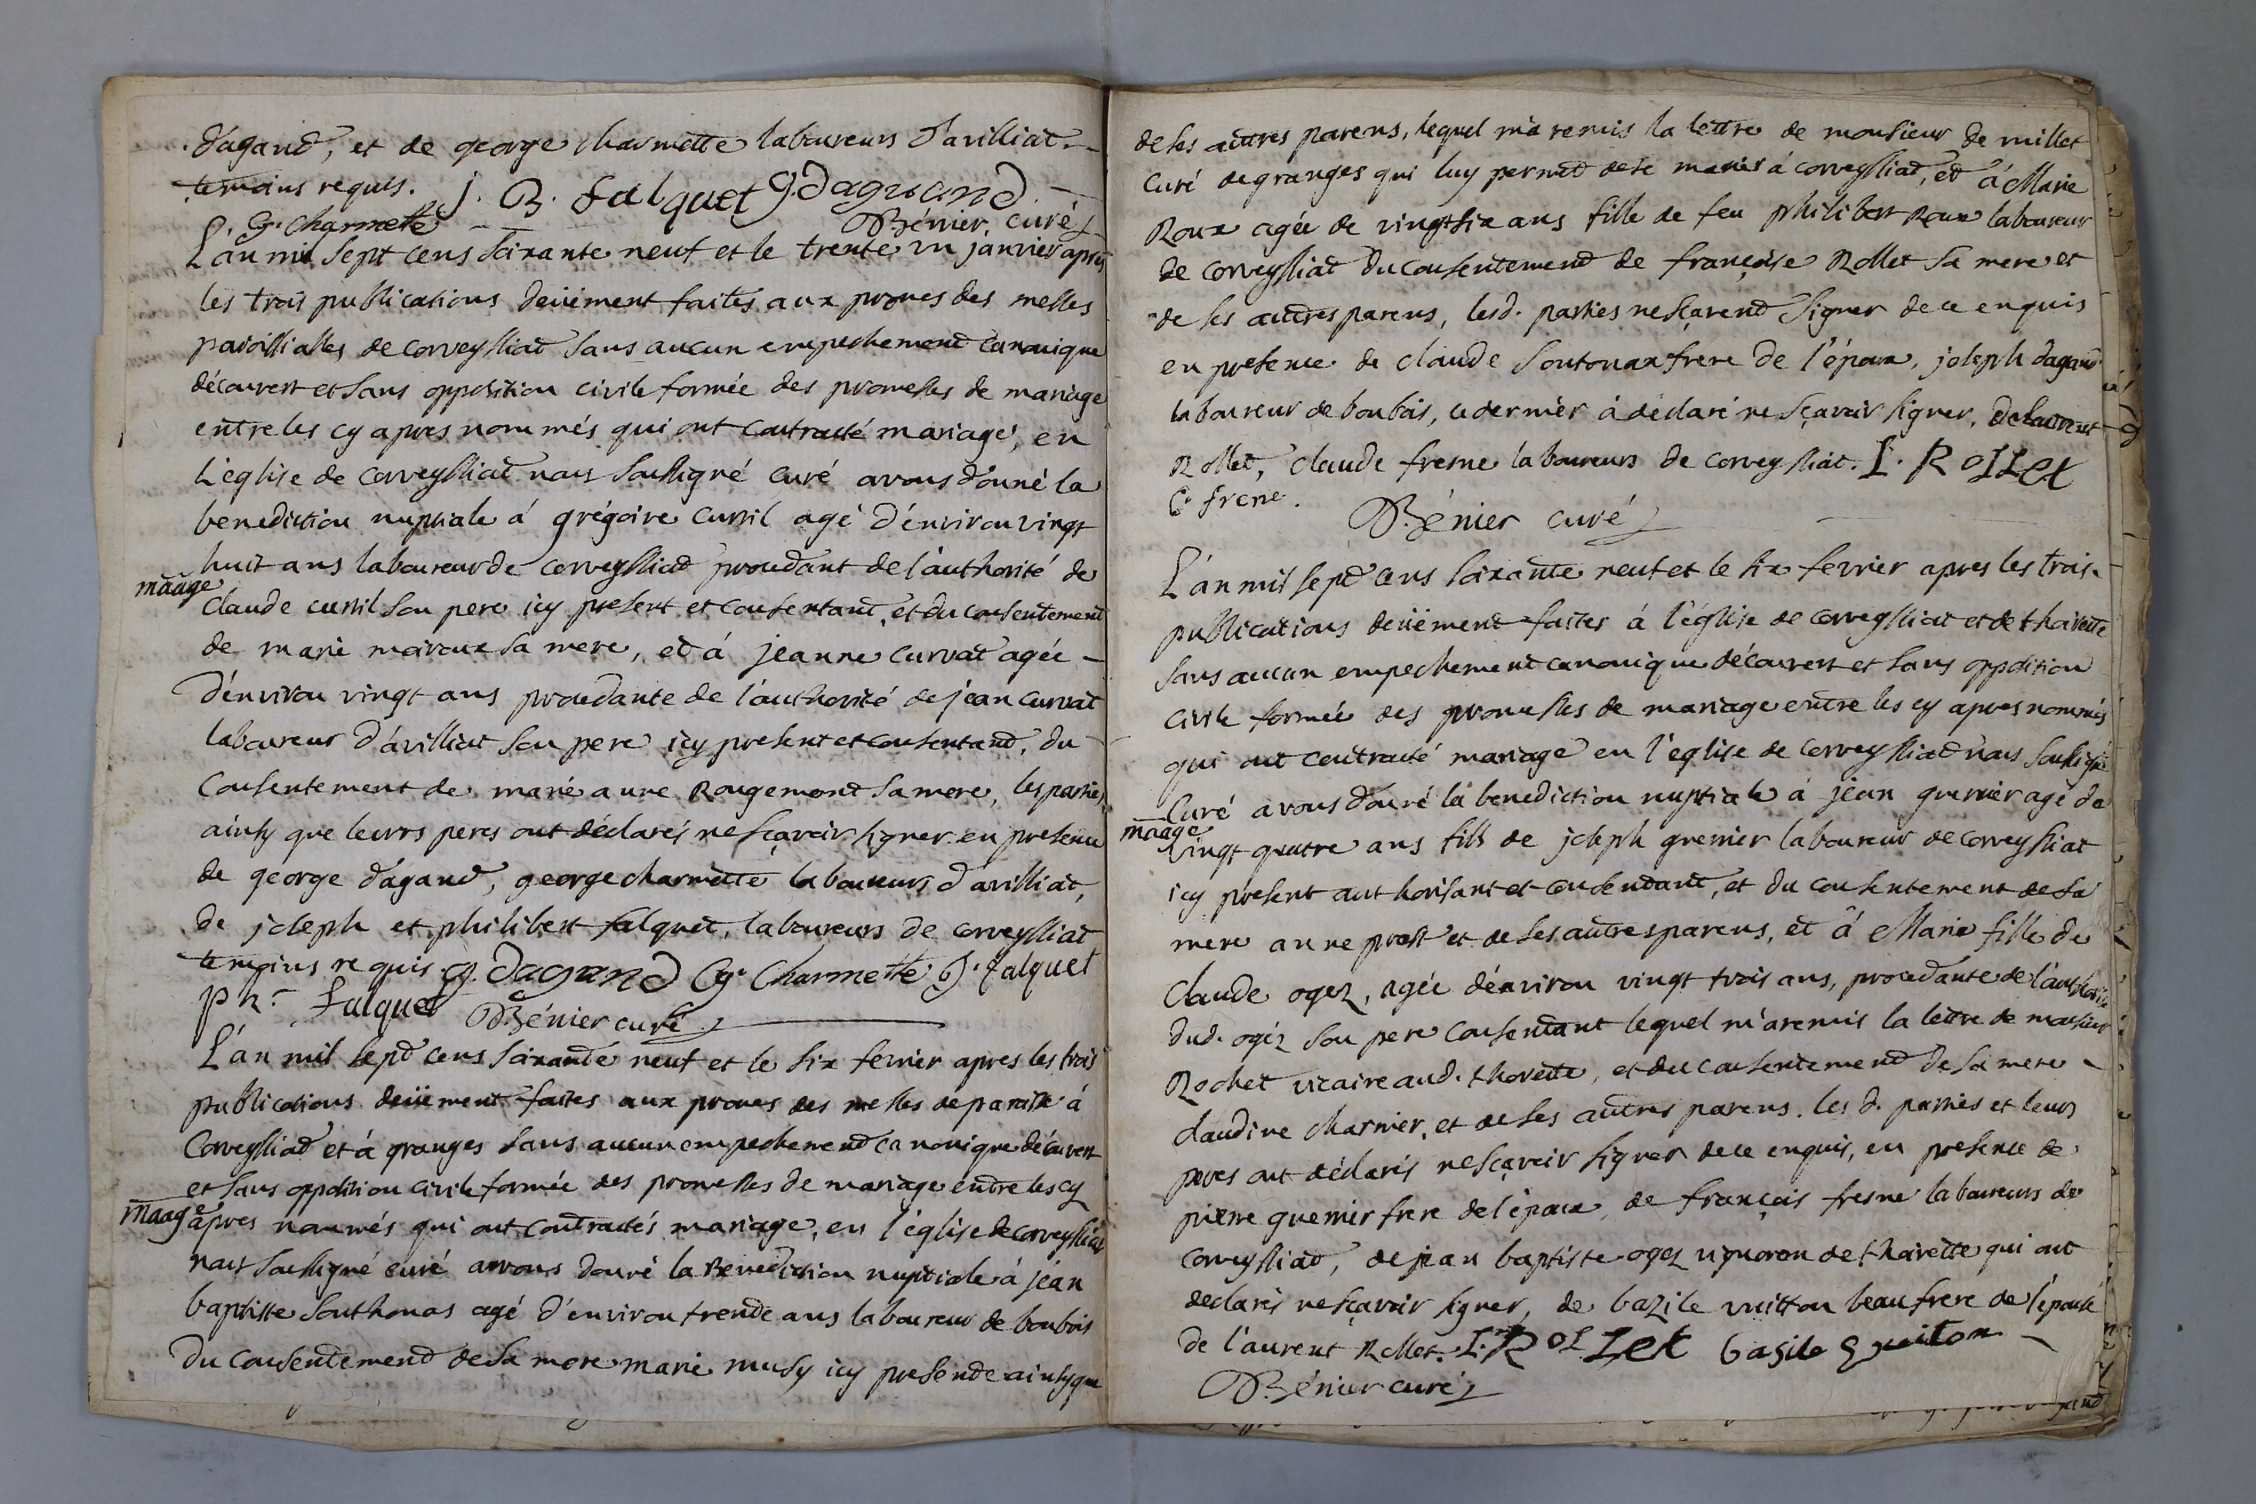 d'agand, et de george charmette laboureurs d'avilliat.
temoins requis. j. B. falquet g. dagand
G. Charmette Bénier curé
L'an mil sept cens soixante neuf et le trente un janvier après
les trois publications deüement faites aux prones des messes
paroissialles de corveyssiat sans aucun empechement canonique
découvert et sans opposition civile formée des promesses de mariage
entre les cy apres nommés qui ont contracté mariage, en
l'eglise de corveyssiat nous soussigné curé avons donné la
benediction nuptiale á grégoire curvil agé d'environ vingt
huit ans laboureur de corveyssiat procedant de l'authorité de
maage
claude curvil son pere icy present et consentant, et du consentement
de marie moiroux sa mere, et á jeanne curvat agée
d'environ vingt ans procedante de l'authorité de jean curvat
laboureur d'avilliat son pere icy present et consentant, du
consentement de marie anne Rougemont sa mere, les parties
ainsy que leurs peres ont déclarés ne sçavoir signer en presence
de george d'agand, george charmette laboureurs d'avilliat,
de joseph et philibert falquet, laboureurs de corveyssiat
temoins requis. g. dagand G. Charmette J. falquet
ph. falquet Bénier curé
L'an mil sept cens soixante neuf et le six fevrier apres les trois
publications deüement faites aux prones des messes de paroisse á
Corveyssiat et á granges sans aucun empechement canonique découvert
et sans opposition civile formée des promesses de mariage entre les cy
maage
apres nommés qui ont contractés mariage, en l'église de corveyssiat
nous soussigné curé avons donné la Benediction nuptiale á jean
baptiste Southonas agé d'environ trente ans laboureur de boubois
du consentement de sa mere marie musy icy presente ainsy que
de ses autres parens, lequel m'a remis la lettre de monsieur de millet
curé de granges qui luy permet de se marier á corveyssiat, et á Marie
Roux agée de vingt six ans fille de feu philibert Roux laboureur
de corveyssiat du consentement de françoise Rollet sa mere et
de ses autres parens, lesd. parties ne sçavent signer de ce enquis
en presence de claude Soutonax frere de l'époux, joseph dagand
laboureur de boubois, ce dernier á déclaré ne sçavoir signer, de laurent
Rollet, claude fresne laboureurs de corveyssiat. L. ROLLet
C. frene.
Bénier curé
L'an mil sept cens soixante neuf et le six fevrier apres les trois
publications deüement faites á l'église de corveyssiat et de thoirette
sans aucun empechement canonique découvert et sans opposition
civile formée des promesses de mariage entre les cy apres nommés
qui ont contracté mariage en l'eglise de corveyssiat nous soussigné
Curé avons donné la benediction nuptiale á jean guerrier agé de
maage
vingt quatre ans fils de joseph guerrier laboureur de corveyssiat
icy present authorisant et consentant, et du consentement de sa
mere anne prost et de ses autres parens, et á Marie fille de
Claude ogez, agée d'environ vingt trois ans, procedante de l'authorité
dud. ogéz son pere consentant lequel m'a remis la lettre de monsieur
Rochet vicaire aud. thoirette, et du consentement de sa mere
claudine charnier, et de ses autres parens. les d. parties et leurs
peres ont déclarés ne sçavoir signer de ce enquis, en presence de
pierre guerrier frere de l'époux, de françois fresne laboureurs de
corveyssiat, de jean baptiste ogez vigneron de thoirette qui ont
declarés ne sçavoir signer, de bazile vuitton beaufrere de l'épouse
de laurent Rollet. L. ROLLet basile Guiton
Bénier curé